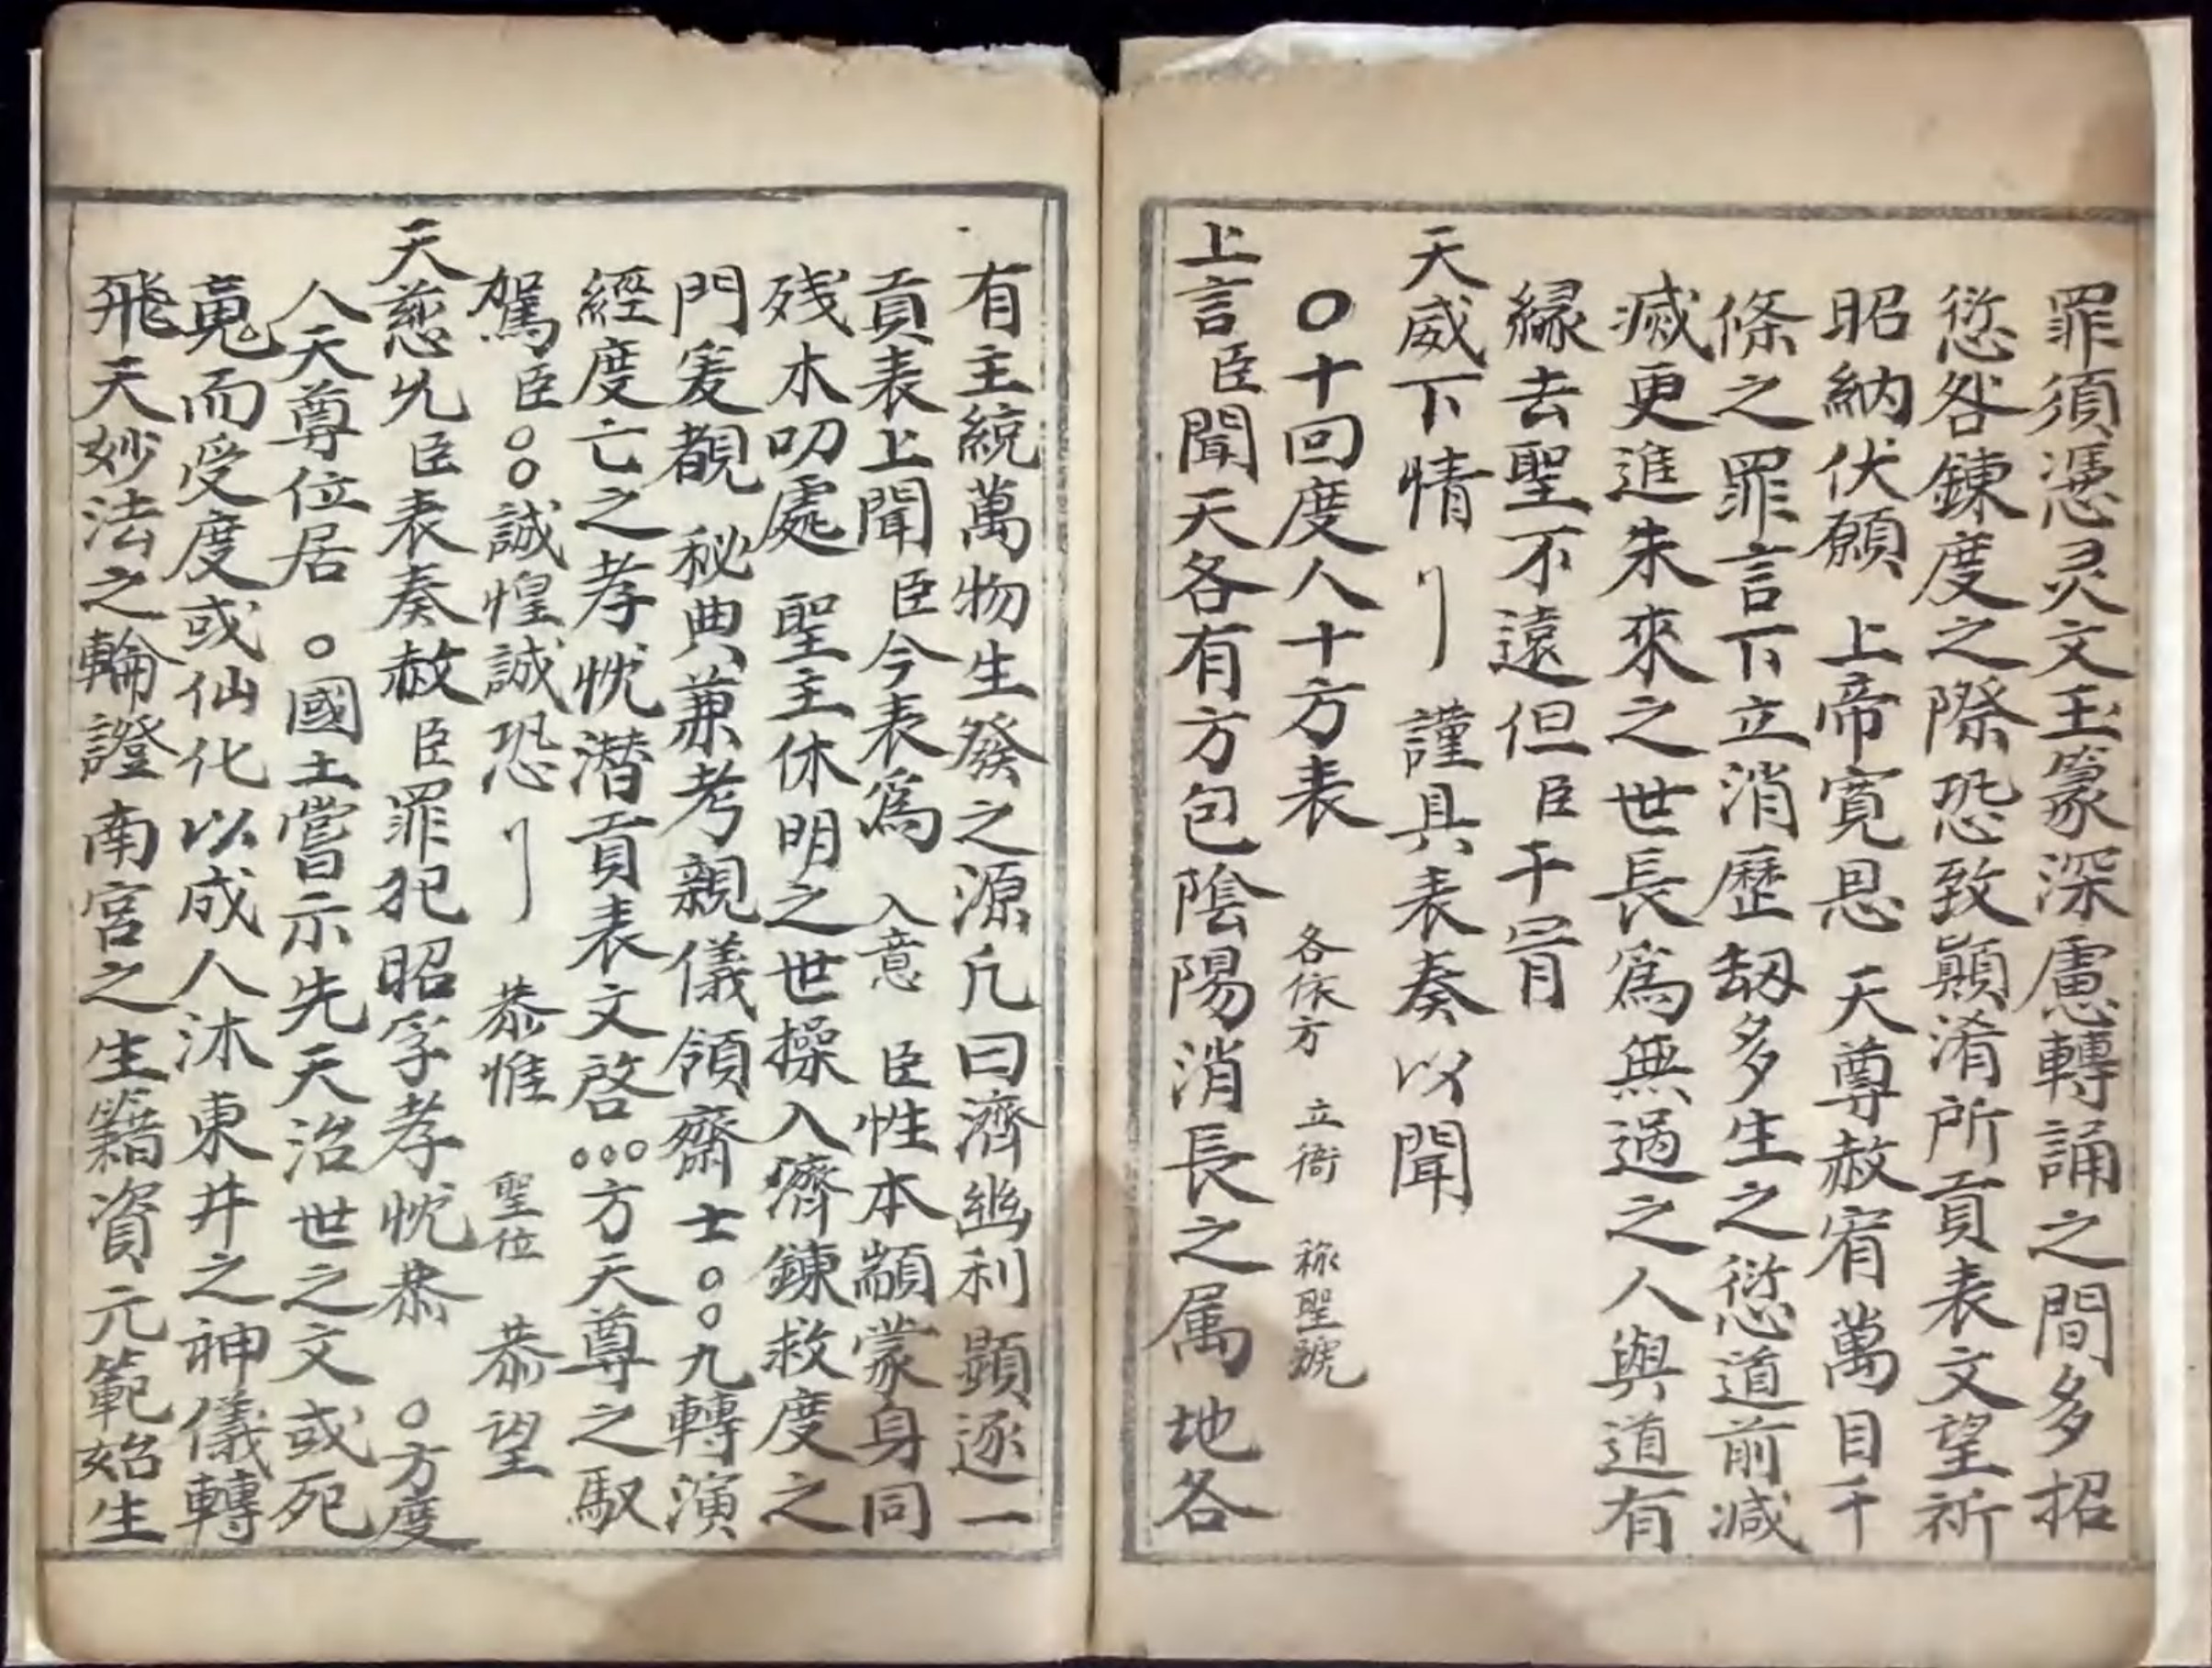 罪須憑灵文玉篆深慮轉誦之間多招
愆咎鍊度之際恐致顛淆所貢表文望祈
昭納伏願 上帝寬恩 天尊赦宥萬目千
條之罪言下立消歷劫多生之愆道前减
滅更進未來之世長爲無過之人與道有
緣去聖不遠但臣干冐
天威下情 謹具表奏以聞
○十回度人十方表 各依方 立衙 称聖號
上言臣聞天各有方包陰陽消長之属地各
有主統萬物生發之源凡曰濟幽利顕逐一
貢表上聞臣今表爲 入意 臣性本顓蒙身同
残木叨處 聖主休明之世操入濟鍊救度之
門爰覩 秘典兼考親儀領齋士○○九轉演
經度亡之孝忱潜貢表文啓○○○方天尊之馭
駕臣○○誠惶誠恐 恭惟 聖位 恭望
天慈允臣表奏赦臣罪犯昭孚孝忱恭 ○方度
人天尊位居 ○國土嘗示先天治世之文或死
䰟而受度或仙化以成人沐東井之神儀轉
飛天妙法之輪證南宮之生籍資元範始生